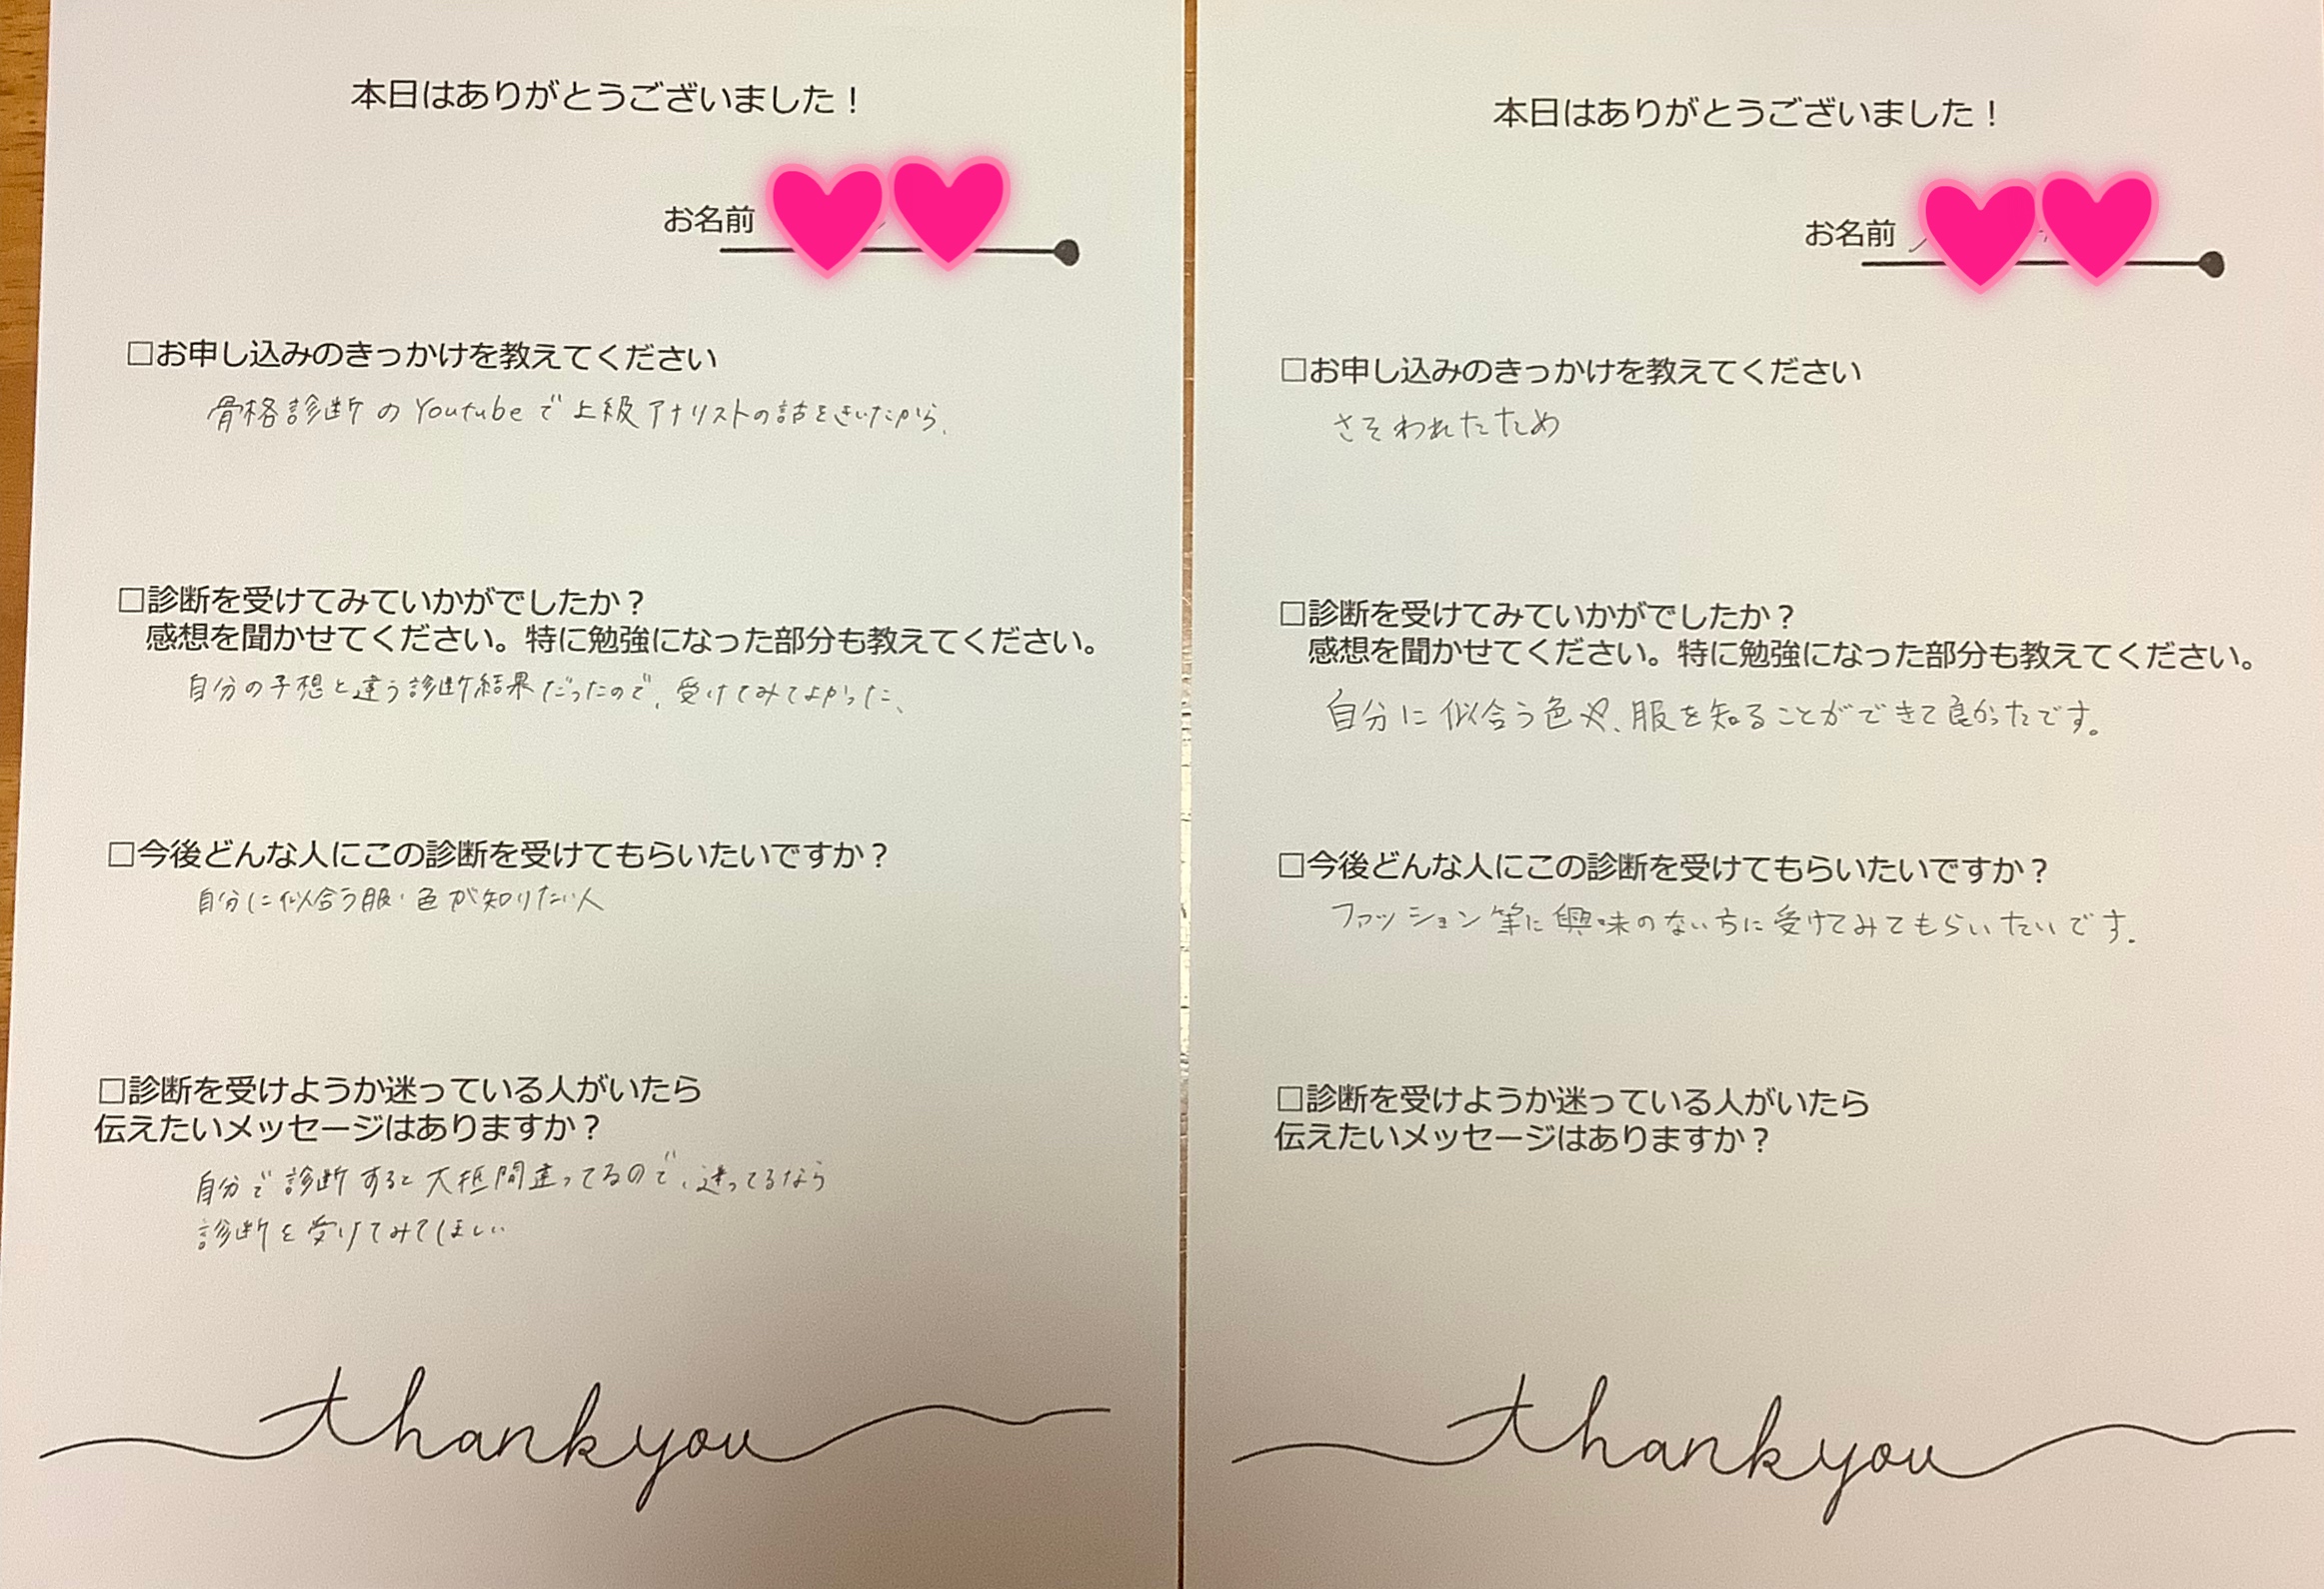 本日はありがとうございました！
お名前
□お申し込みのきっかけを教えてください
骨格診断のYoutubeで上級アナリストの話をきいたから、
□診断を受けてみていかがでしたか？
感想を聞かせてください。特に勉強になった部分も教えてください。
自分の予想と違う診断結果だったので、受けてみてよかった、
□今後どんな人にこの診断を受けてもらいたいですか？
自分に似合う服・色が知りたい人
□診断を受けようか迷っている人がいたら
伝えたいメッセージはありますか？
自分で診断すると大抵間違ってるので、迷ってるなら
診断を受けてみてほしい
thankyou
本日はありがとうございました！
お名前
□お申し込みのきっかけを教えてください
さそわれたため
□診断を受けてみていかがでしたか？
感想を聞かせてください。特に勉強になった部分も教えてください。
自分に似合う色や、服を知ることができて良かったです。
□今後どんな人にこの診断を受けてもらいたいですか？
ファッション等に興味のない方に受けてみてもらいたいです.
□診断を受けようか迷っている人がいたら
伝えたいメッセージはありますか？
thankyou